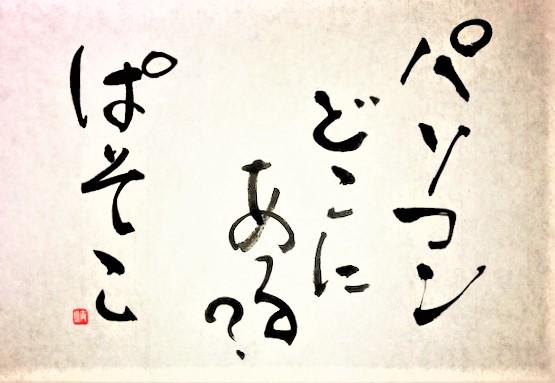 パソコン
どこに
ある?
ぱそこ